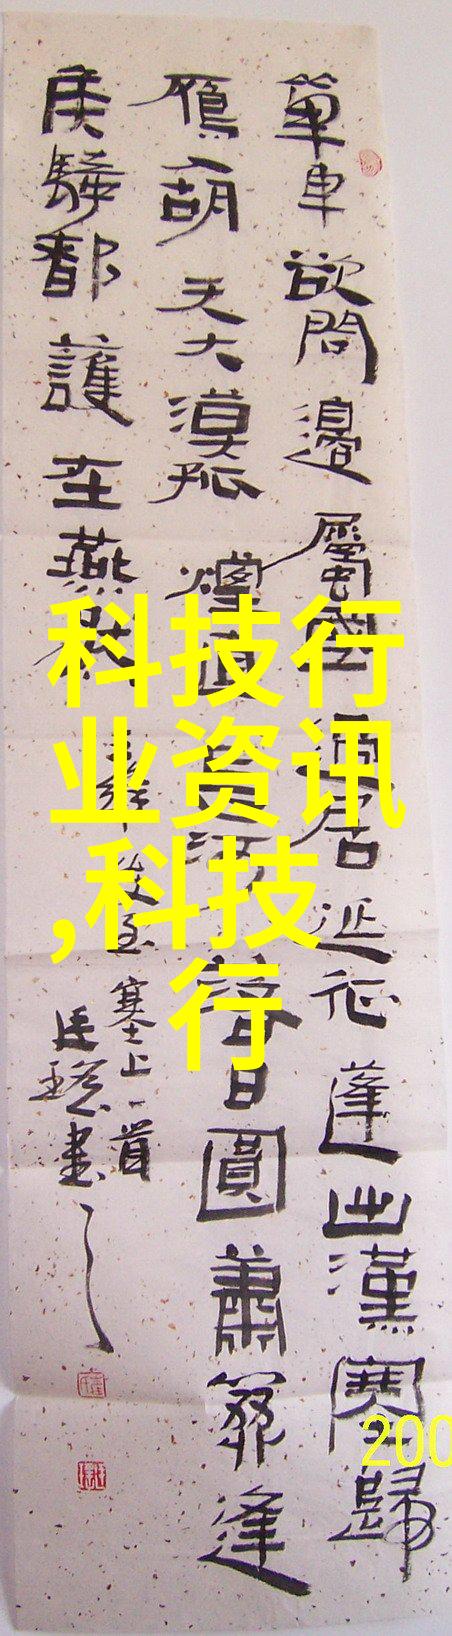 單車欲問邊屬國過居延征蓬出漢塞歸
雁入胡天大漠孤煙直長河落日圓蕭關逢
侯騎都護在燕然
王維使至塞上一首
書
科技行
业资讯
,科技
行
200